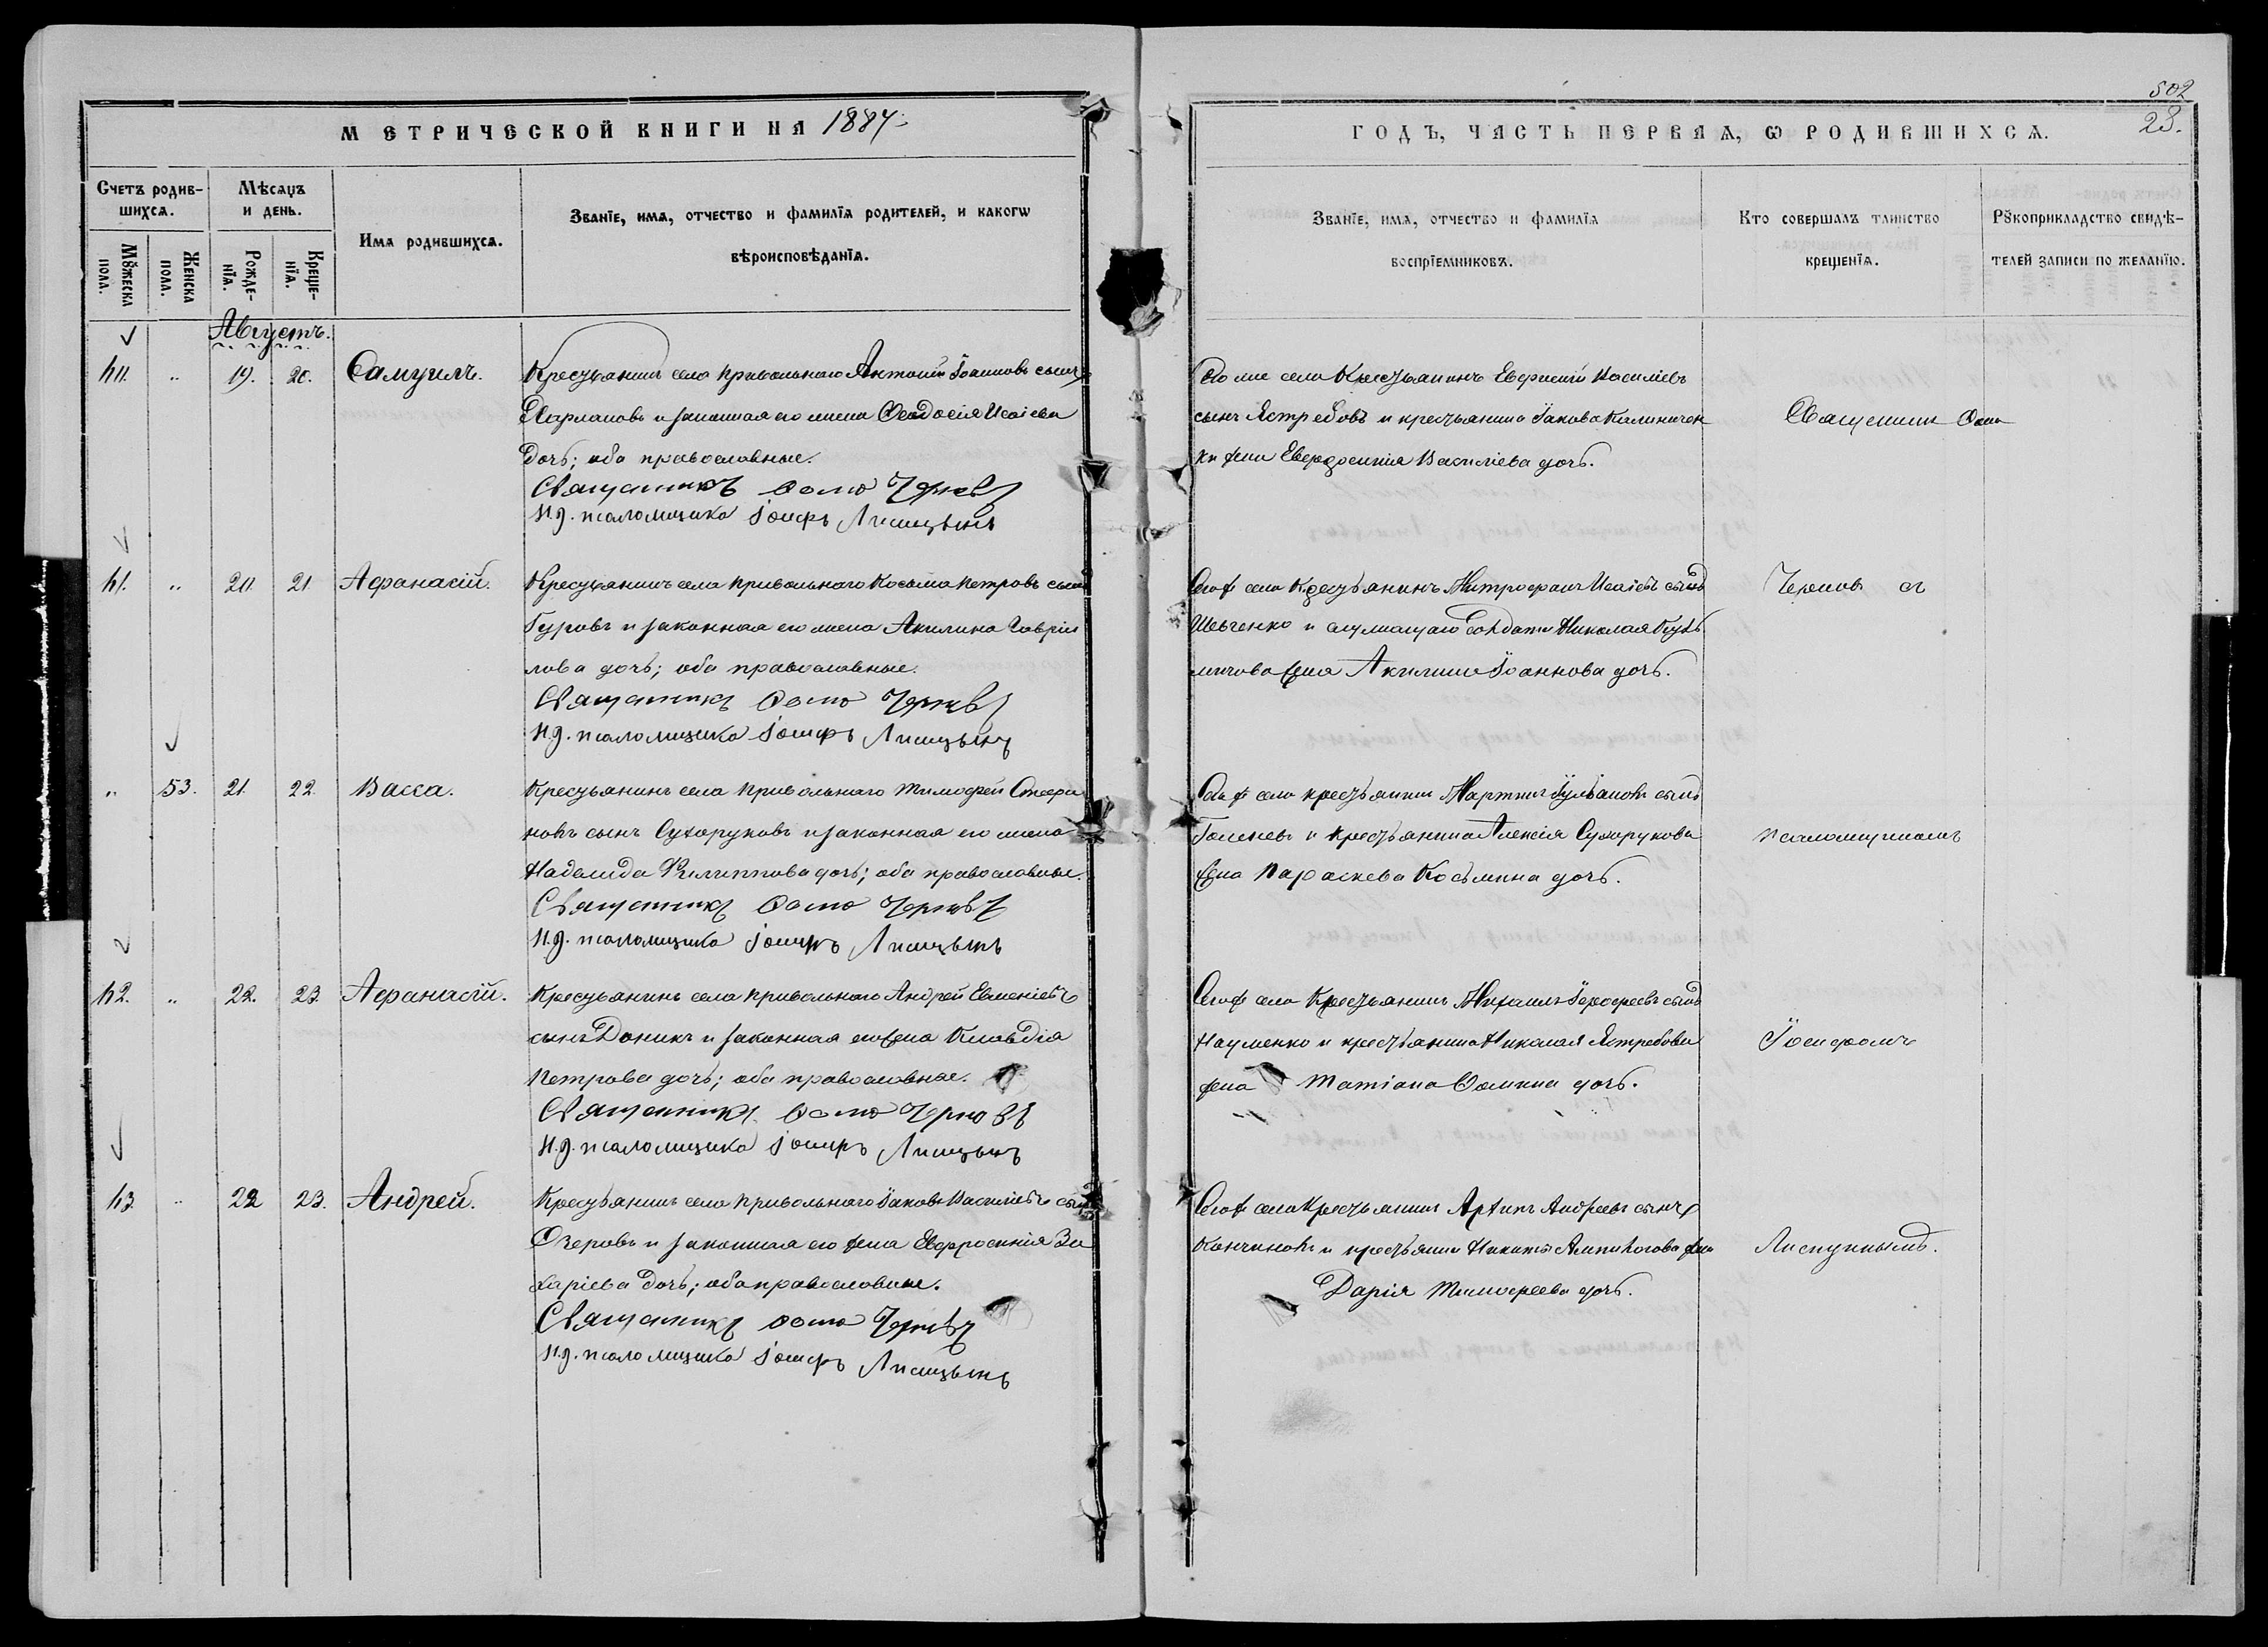 МЕТРИЧЕСКОЙ КНИГИ НА 1884
Счетъ родив-
шихсѧ.
Мѣсѧцъ
и день.
Имѧ родившихсѧ.
Званїе, имѧ, отчество и фамилїѧ родителей, и какогѡ
вѣроисповѣданїѧ.
Мꙋжеска
пола.
Женска
пола.
Рожде-
нїѧ.
Креще-
нїѧ.
Августъ.
19. 20. Самуилъ.
Крестьянинъ села Привольнаго Антоній Іоанновъ сынъ
и законная его жена Феодосія Исаіева
дочь; оба православные.
Священникъ Фома Черновъ
И.д. псаломщика Іосифъ Лисицынъ
41. " 20 21. Афанасій.
Крестьянинъ села Привольнаго Косьма Петровъ сынъ
Гуровъ и законная его жена Акилина Гаврии
лова дочь; оба православные.
Священникъ Фома Черновъ
И.д. псаломщика Іосифъ Лисицынъ
" 53. 21. 22. Васса.
Крестьянинъ села Привольнаго Тимофей Стефа
новъ сынъ Сухоруковъ и законная его жена
Надежда Филиппова дочь; оба православные.
Священникъ Фома Черновъ
И.д. псаломщика Іосифъ Лисицынъ
42. " 22. 23. Афанасій.
Крестьянинъ села Привольнаго Андрей Евменіевъ
сынъ Доникъ и законная его жена Клавдія
Петрова дочь; оба православные.
Священникъ Фома Черновъ
И.д. псаломщика Іосифъ Лисицынъ
43. " 22 23. Андрей.
Крестьянинъ села Привольнаго Іаковъ Василіевъ сынъ
Озеровъ и законная его жена Евфросинія За
харіева дочь; оба православные.
Священникъ Фома Черновъ
И.д. псаломщика Іосифъ Лисицынъ
502
23.
ГОДЪ, ЧАСТЬ ПЕРВАѦ, Ѡ РОДИВШИХСѦ.
Званїе, имѧ, отчество и фамилїѧ
воспрїемниковъ.
Кто совершалъ таинство
крещенїѧ.
Рꙋкоприкладство свидѣ-
телей записи по желанїю.
села Крестьянинъ Василіевъ
сынъ Ястребовъ и крестьянина Іакова Калиничен
ки жена Евфросинія Василіева дочь.
села Крестьянинъ Митрофанъ Исаіевъ сынъ
Шевченко и служащаго солдата Николая
жена Акилина Іоаннова дочь.
села крестьянинъ Мартинъ сынъ
и крестьянина Алексія Сухорукова
жена Параскева Косьмина дочь.
села Крестьянинъ Михаилъ сынъ
Науменко и крестьянина Николая Ястребова
жена Татіана Фомина дочь.
села Крестьянинъ Андреевъ сынъ
и крестьянина Никиты жена
Дарія Тимофеева дочь.
Священникъ Фома
Черновъ съ
псаломщикомъ
Іосифомъ
Лисицынымъ.